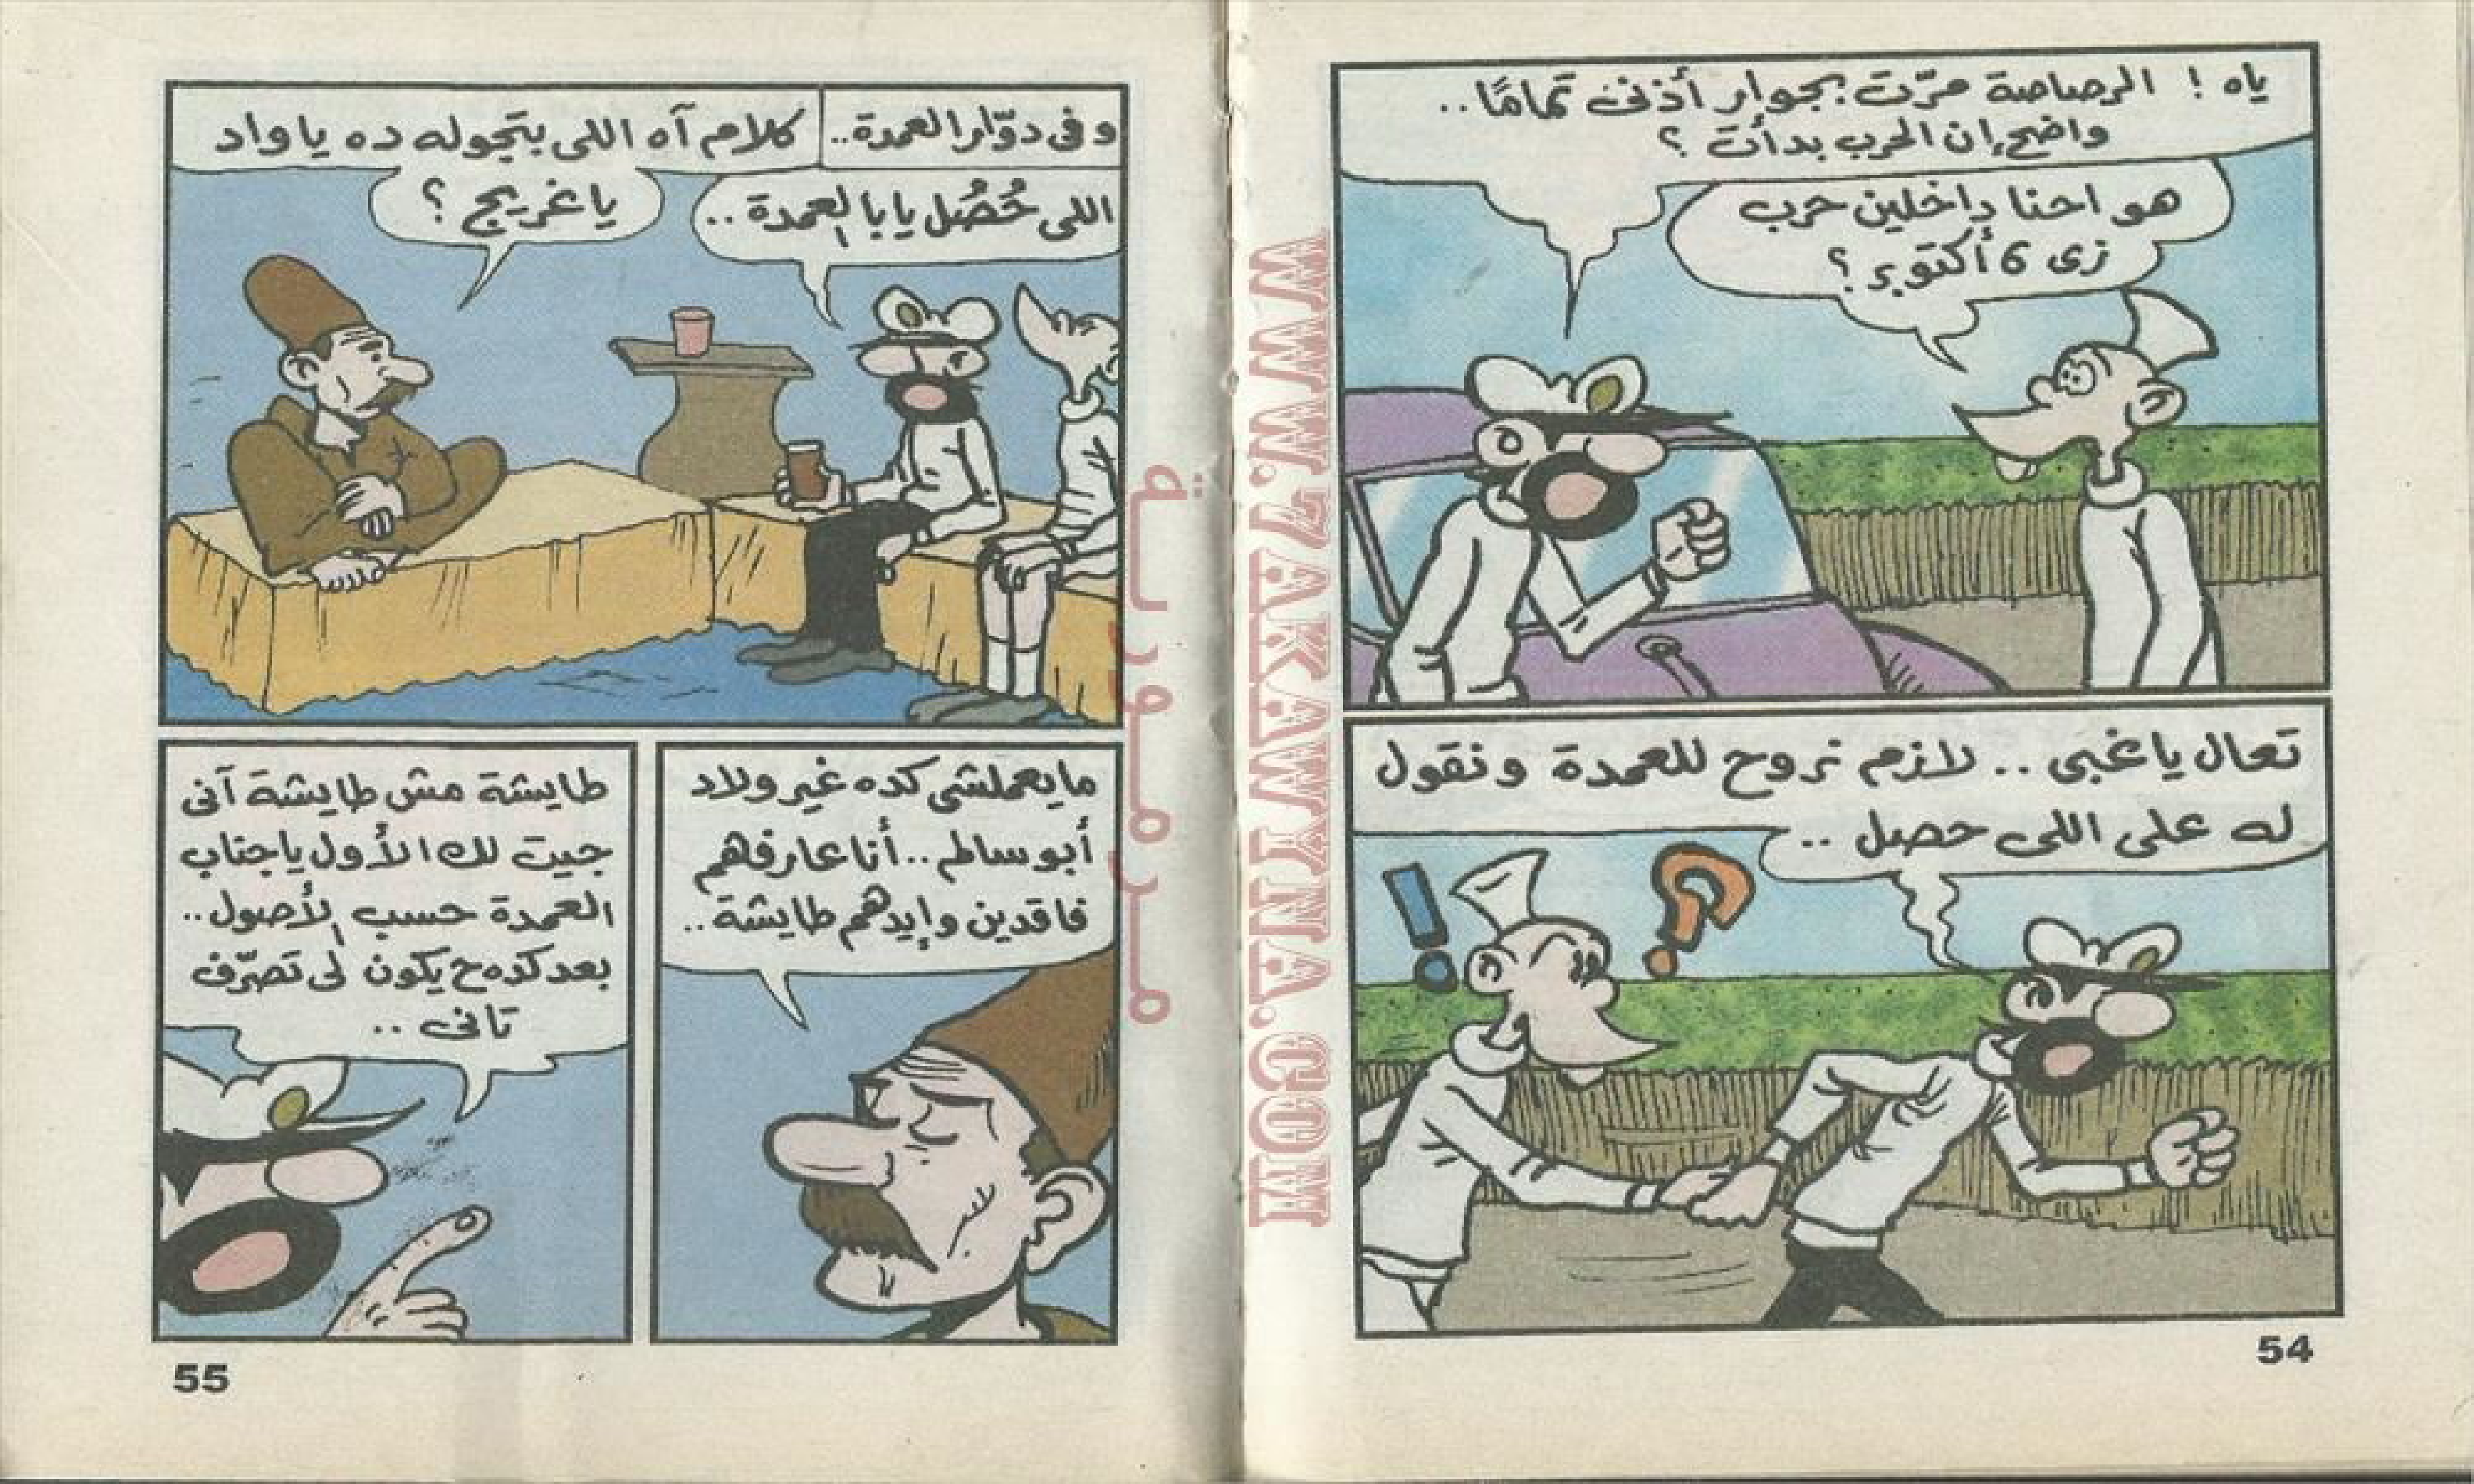 ياه ! الرصاصة مرّت بجوار أذنى تمامًا..
واضح إن الحرب بدأت ؟
هو احنا داخلين حرب
زى 6 أكتوبر ؟
تعال ياغبى .. لازم نروح للعمدة ونقول
له على اللى حصل ..
54
وفى دوّار العمدة..
اللى حُصُل يابا العمدة ..
كلام آه اللى بتجوله ده ياواد
ياغريج ؟
مايعملشى كده غير ولاد
أبوسالم .. أنا عارفهم
فاقدين وإيدهم طايشة ..
طايشة مش طايشة آنى
جيت لك الأول ياجناب
العمدة حسب الأصول ..
بعد كده ح يكون لى تصرّف
تانى ..
55
WWW.ZAKAWYNA.COM
مرمورية